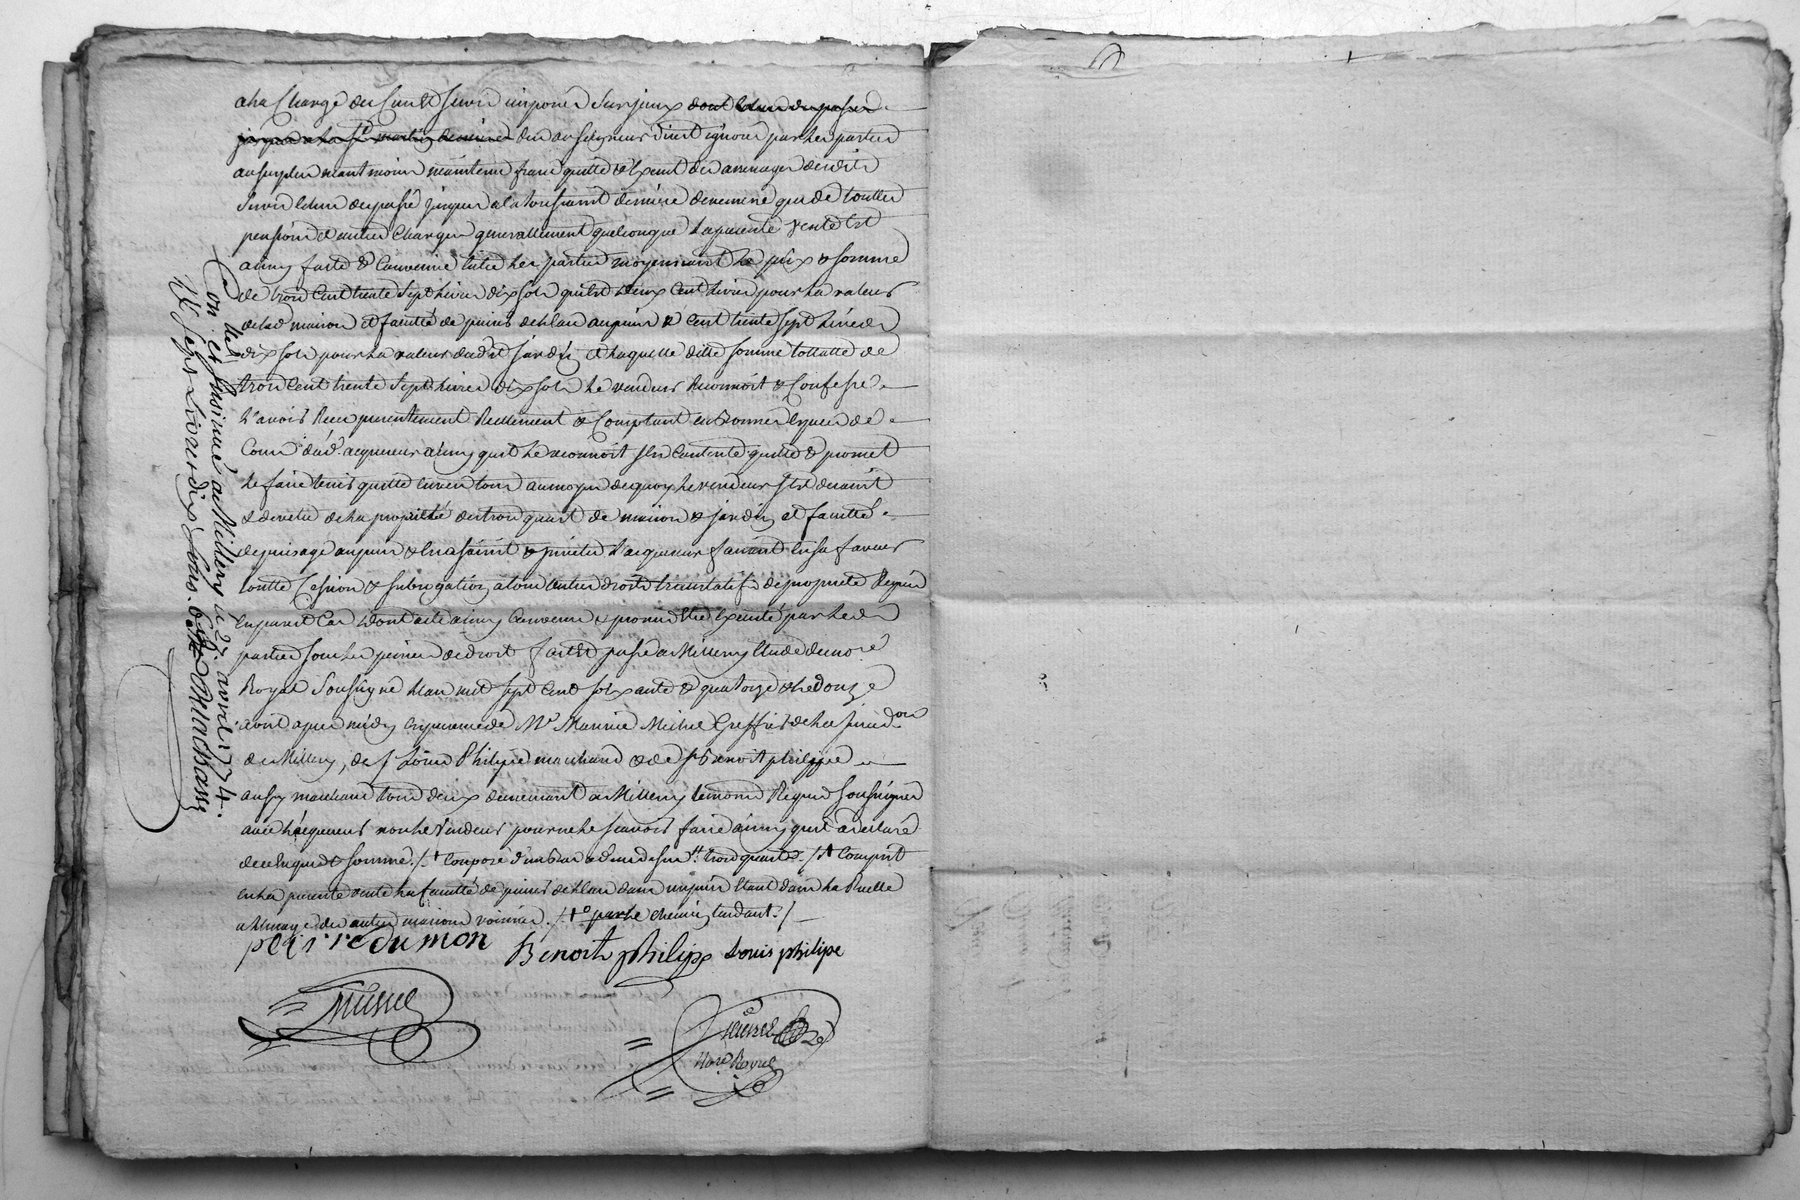 a la Charge du Cens et servis imposés sur iceux dont celuy du passé
jusques a la st martin derniere du au seigneur direct ignoré par les parties
au surplus neantmoins maintenu franc quitte et exempt des arrerages desdits
servis celuy du passé jusques a la toussaint derniere de meme que de touttes
pensions et autres charges generallement quelconque la presente vente est
ainsy faite et Convenüe entre les parties moyennant le prix et somme
de trois cent trente sept livres dix sols qui est deux cent livres pour la valeur
de lad maison et faculté de puiser de l'eau au puits et cent trente sept livres
dix sols pour la valeur dudit jardin et laquelle ditte somme tottalle de
trois cent trente sept livres dix sols le vendeur Reconnoit et Confesse
l'avoir Reçu presentement Reellement et Comptant en bonnes especes de
Cours dud. acquereur ainsy qu'il le reconnoit s'en contente quitte et promet
le faire tenir quitte envers tous au moyen de quoy le vendeur s'est demis
et devetu de la proprieté des trois quart de maison et jardin et faculté
de puisage au puits et en a saisit et invetu l'acquereur faisant en sa faveur
toutte Cession et subrogation a tous autres droits translatifs de proprieté Requis
en pareil Cas dont acte ainsy Convenu et promis etre executé par lesd
parties sous les peines de droit fait et passé a Millery Etude du no.re
Royal soussigné l'an mil sept cent soixante et quatorze et le douze
avril apres midy en presence de Mr Maurice Michel Greffier de la jurid.on
de Millery, de sr Loüis Philipe marchand et de sr Benoit philippe
aussy marchand tous deux demeurant a Millery temoins Requis soussignés
avec l'acquereur non le Vendeur pour ne le sçavoir faire ainsy qu'il a declaré
de ce enquis et sommé ./. † Composé d'un bas et d'un dessus trois quarts ./. †† Compris
en la presente vente la faculté de puiser de l'eau dans un puits etant dans la Ruelle
a l'usage des autres maisons voisines ./. †° par le chemin tendant ./.
peirre dumon Benoit philipe Louis philipe
Michel
No.re Royal
Con.lé et Insinué a Millery le 23. avril 1774.
R. sept Livres dix sous.